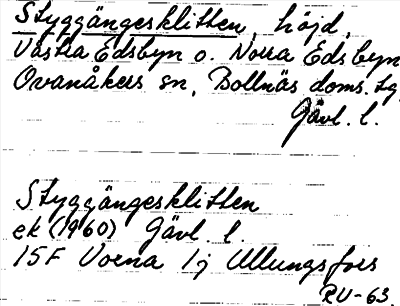 Styggängesklitten, höjd,
Västra Edsbyn o. Norra Edsbyn
Ovanåkers sn, Bollnäs doms. tg
Gävl. l.
Styggängesklitten
ek (1960) Gävl. l.
15F Voxna 1j Ullungsfors
RU-63.